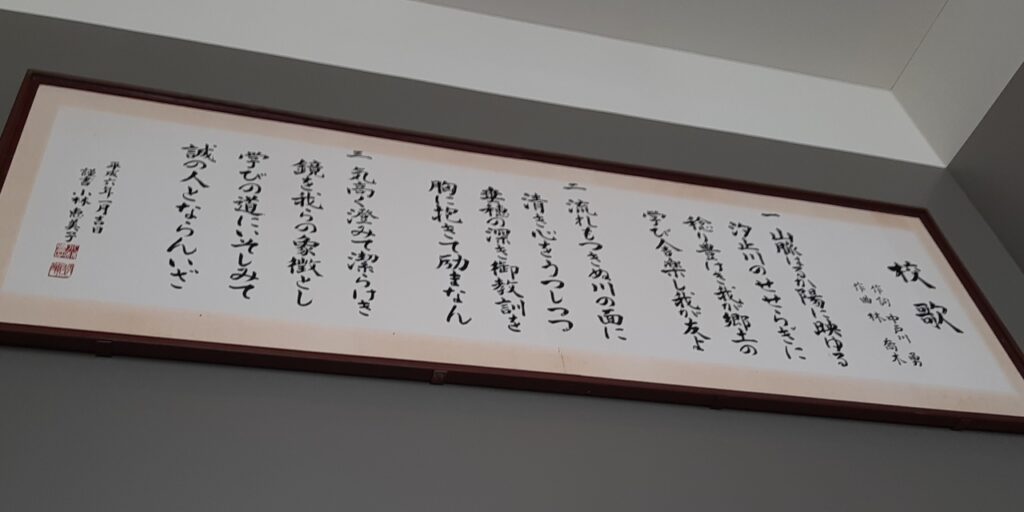 校歌
作詞 中戸川 勇
作曲 林 喬木
一 山脈はるか陽に映ゆる
汐止川のせせらぎに
稔り豊けき我が郷土の
学び舎楽し我が友よ
二 流れもつきぬ川の面に
清き心をうつしつつ
垂穂の深き御教訓を
胸に抱きて励まなん
三 気高く澄みて潔らけき
鏡を我らの象徴とし
学びの道にいそしみて
誠の人とならんいざ
平成六年一月吉日
謹書 小林